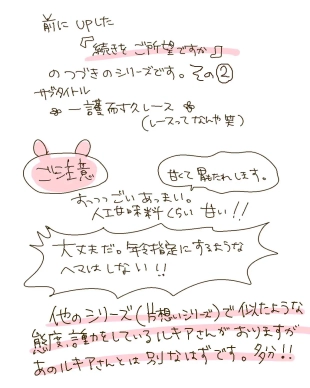 前に UPした
『続きを ご所望ですか』
の つづきの シリーズです。その②
サブタイトル
一護耐久レース
(レースってなんや 笑)
ご注意
甘くて 胃もたれします。
すっっっごい あっまい。
人工甘味料くらい 甘い!!
大丈夫だ。年令指定にするような
ヘマは しない!!
他のシリーズ(片想いシリーズ)で 似たような
態度、言動をしている ルキアさんが おりますが
あのルキアさんとは 別なはずです。多分!!